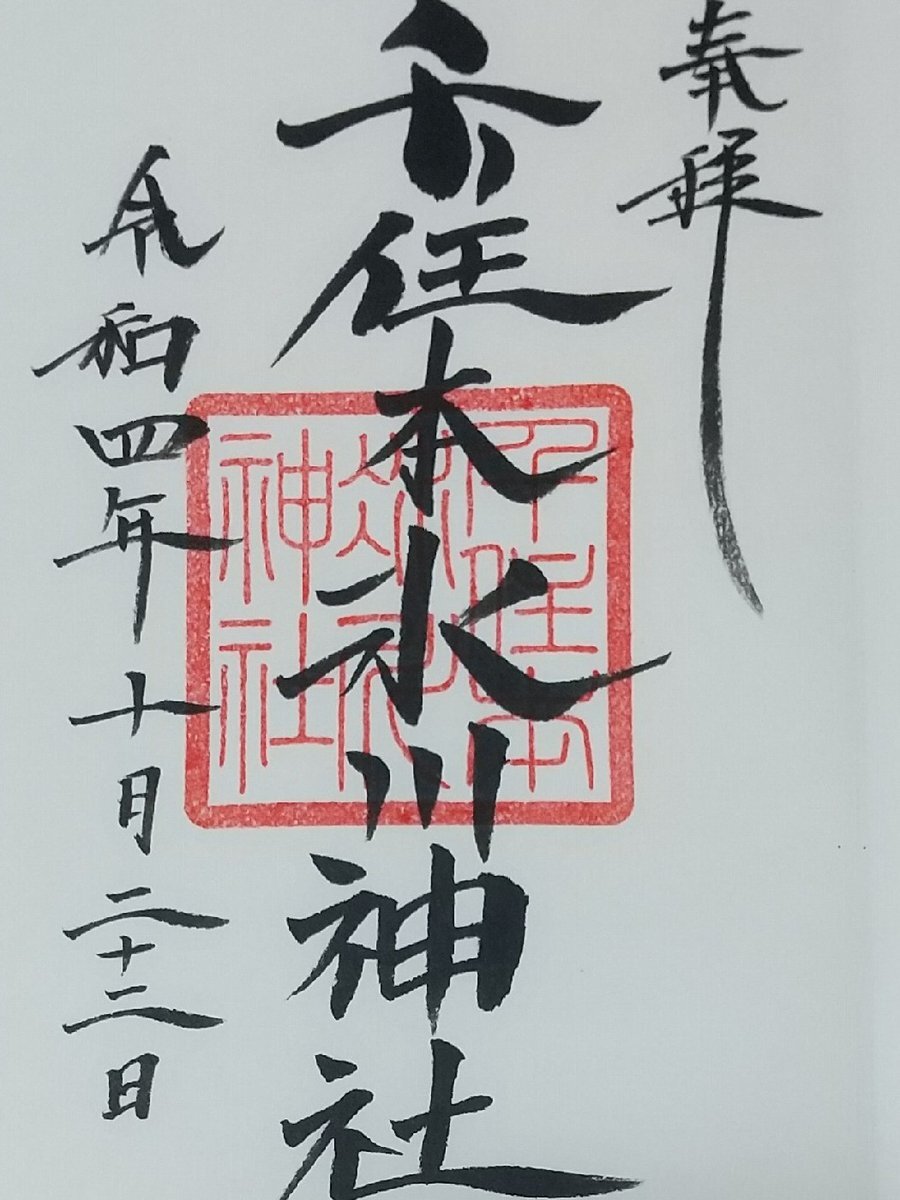 奉拝
千住本氷川神社
令和四年十月二十三日
千住本
氷川
神社